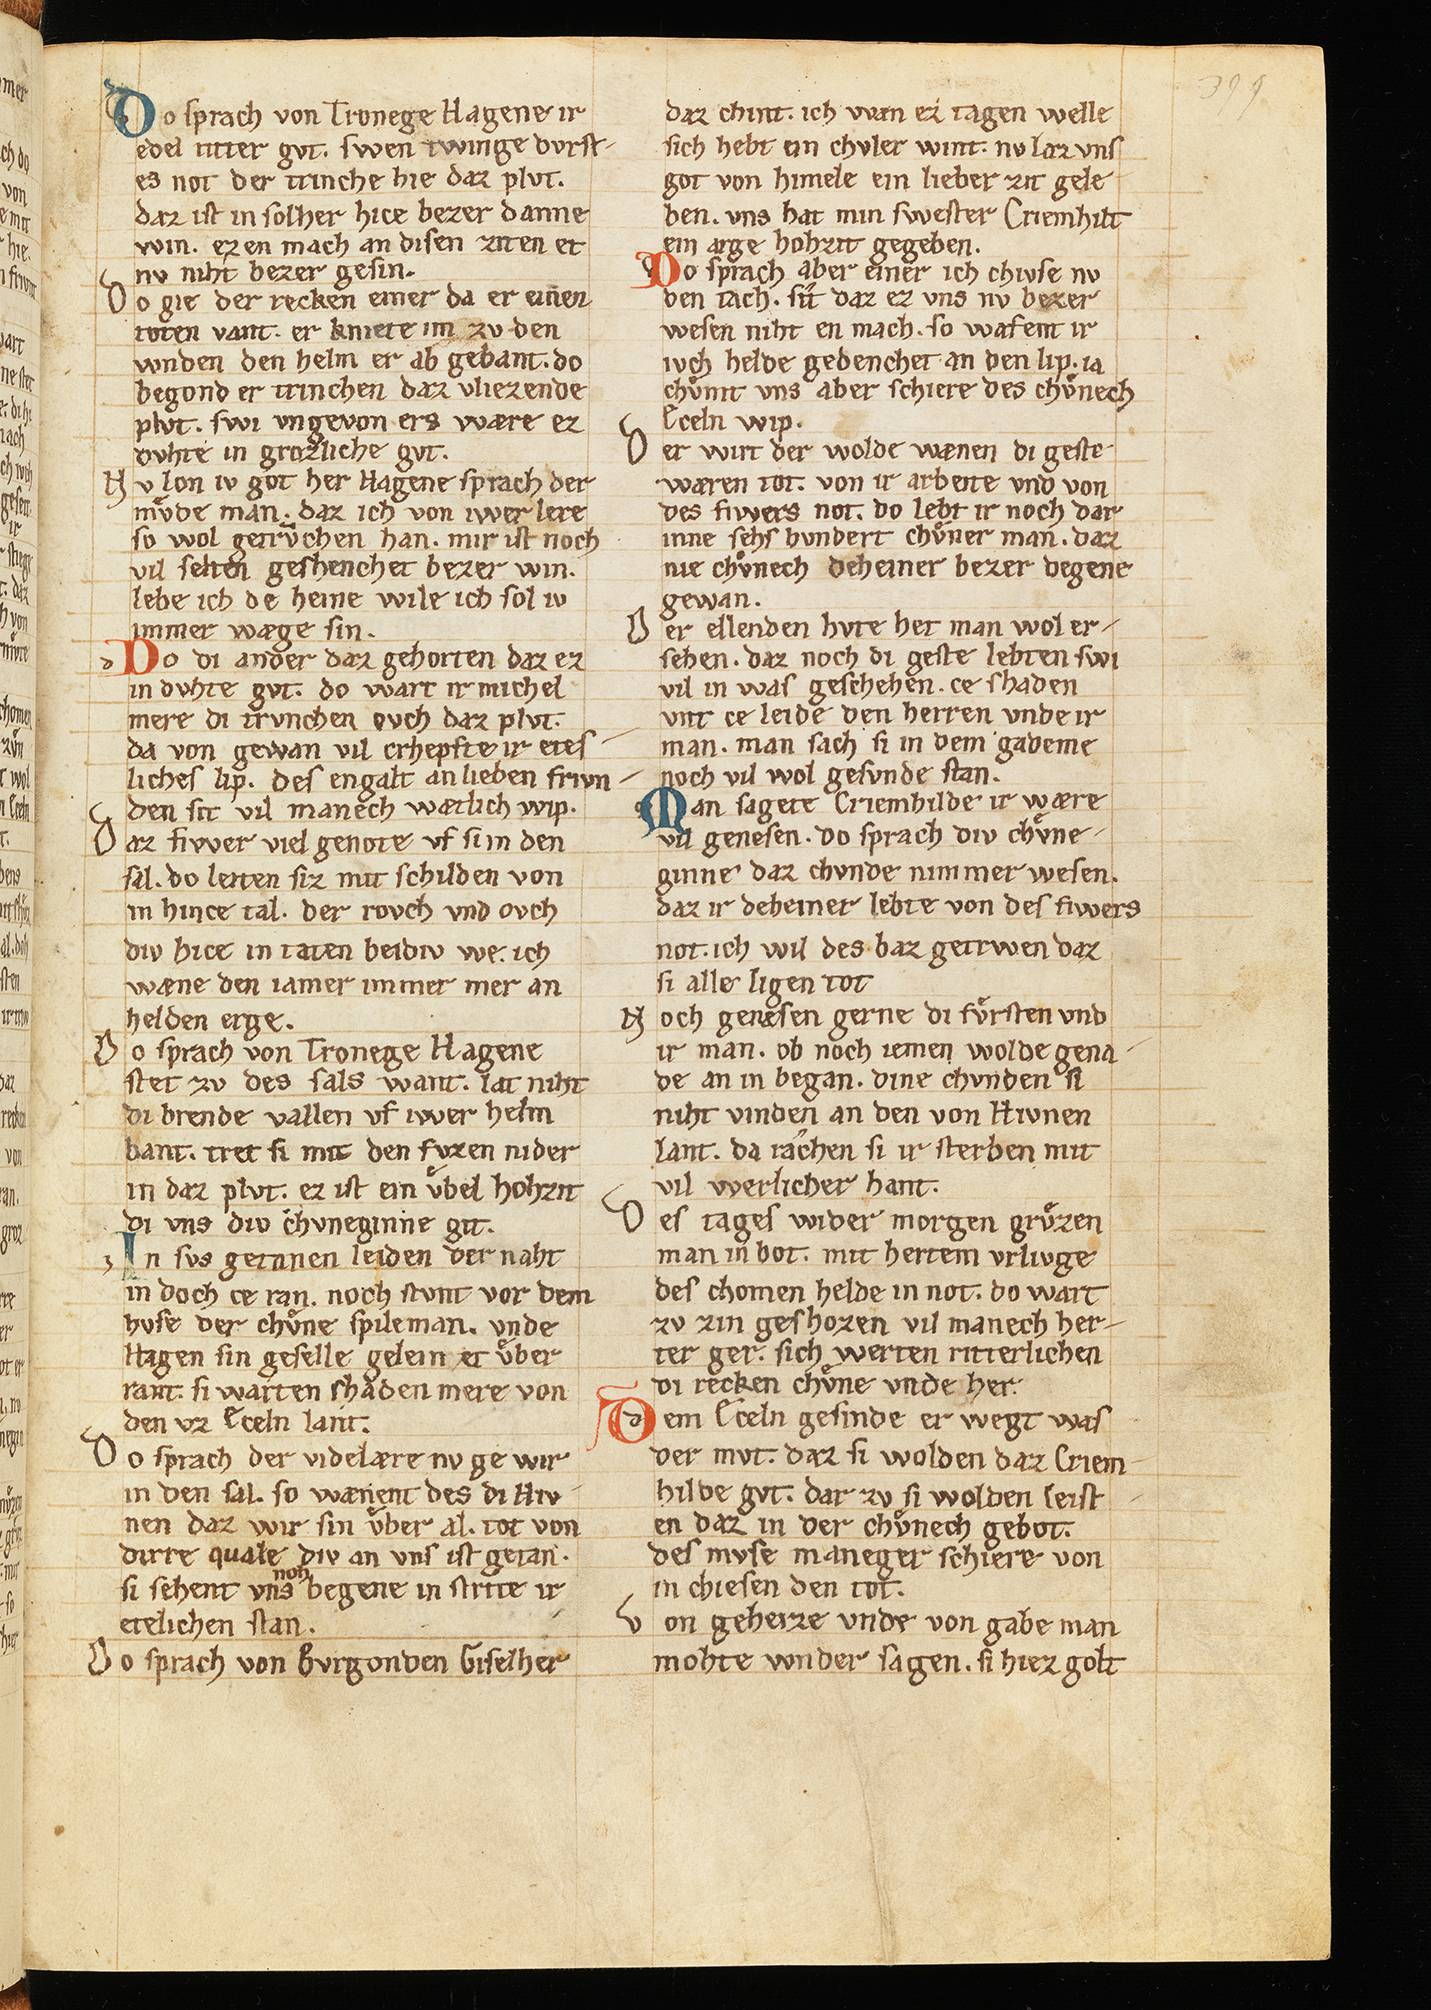 Do sprach von Tronege Hagene ir
edel ritter gvt. swen twinge dvrst
es not der trinche hie daz plvt.
daz ist in solher hice bezer danne
win. ez en mach an disen ziten et
nv niht bezer gesin.
Do gie der recken einer da er einen
toten vant. er kniete im zv den
wnden den helm er ab gebant. do
begond er trinchen daz vliezende
plvt. swi vngevon ers wære ez
dvhte in grozliche gvt.
Nv lon iv got her Hagene sprach der
mvͤde man. daz ich von iwer lere
so wol getrvͦnchen han. mir ist noch
vil selten geshenchet bezer win.
lebe ich de heine wile ich sol iv
immer wæge sin.
Do di ander daz gehorten daz ez
in dvhte gvt. do wart ir michel
mere di trvnchen ovch daz plvt.
da von gewan vil crhepfte ir etes
liches lip. des engalt an lieben frivn
den sit vil manech wætlich wip.
Daz fivver viel genote vf si in den
sal. do leiten siz mit schilden von
in hince tal. der rovch vnd ovch
div hice in taten beidiv we. ich
wæne den iamer immer mer an
helden erge.
Do sprach von Tronege Hagene
stet zv des sals want. lat niht
di brende vallen vf iwer helm
bant. tret si mit den fvzen nider
in daz plvt. ez ist ein vͤbel hohzit
di vns div chvneginne git.
In svs getanen leiden der naht
in doch ce ran. noch stvnt vor dem
hvse der chvͤne spileman. vnde
Hagen sin geselle geleinet vͤber
rant. si warten shaden mere von
den vz Eceln lant.
Do sprach der videlære nv ge wir
in den sal. so wænent des di Hiv
nen daz wir sin vͤber al. tot von
dirre quale div an vns ist getan.
si sehent vns noh begene in strite ir
etelichen stan.
Do sprach von Bvrgonden Giselher
daz chint. ich wæn ez tagen welle
sich hebt ein chvler wint. nv laz vns
got von himele ein lieber zit gele
ben. vns hat min swester Criemhilt
ein arge hohzit gegeben.
Do sprach aber einer ich chivse nv
den tach. sit daz ez vns nv bezer
wesen niht en mach. so wafent ir
ivch helde gedenchet an den lip. ia
chvͤmt vns aber schiere des chvͤnech
Eceln wip.
Der wirt der wolde wænen di geste
wæren tot. von ir arbeite vnd von
des fiwers not. do lebt ir noch dar
inne sehs hvndert chvͤner man. daz
nie chvͤnech deheiner bezer degene
gewan.
Der ellenden hvte het man wol er
sehen. daz noch di geste lebten swi
vil in was geschehen. ce shaden
vnt ce leide den herren vnde ir
man. man sach si in dem gademe
noch vil wol gesvnde stan.
Man sagete Criemhilde ir wære
vil genesen. do sprach div chvͤne
ginne daz chvnde nimmer wesen.
daz ir deheiner lebte von des fiwers
not. ich wil des baz getrwen daz
si alle ligen tot
Noch genæsen gerne di fvͤrsten vnd
ir man. ob noch iemen wolde gena
de an in began. dine chvnden si
niht vinden an den von Hivnen
lant. da rachen si ir sterben mit
vil werlicher hant.
Des tages wider morgen grvͤzen
man in bot. mit hertem vrlivge
des chomen helde in not. do wart
zv zin geshozen vil manech her
ter ger. sich werten ritterlichen
di recken chvͤne vnde her.
Dem Eceln gesinde er wegt was
der mvt. daz si wolden daz Criem
hilde gvt. dar zv si wolden leist
en daz in der chvͤnech gebot.
des mvse maneger schiere von
in chiesen den tot.
Von geheize vnde von gabe man
mohte wnder sagen. si hiez golt